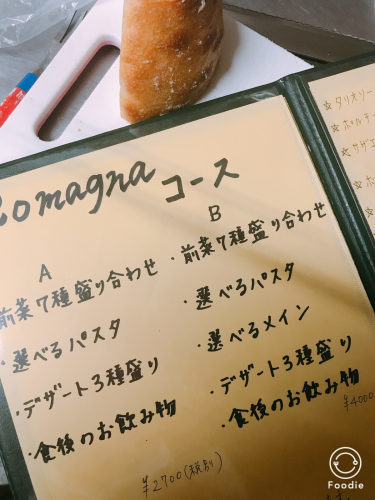 Romagna コース
A
前菜7種盛り合わせ
・選べるパスタ
・デザート3種盛り
・食後のお飲み物
¥2700(税別)
B
・前菜7種盛り合わせ
・選べるパスタ
・選べるメイン
・デザート3種盛り
・食後のお飲み物
¥4000
☆タリオリー
☆ポルチ
☆サザエ
Foodie